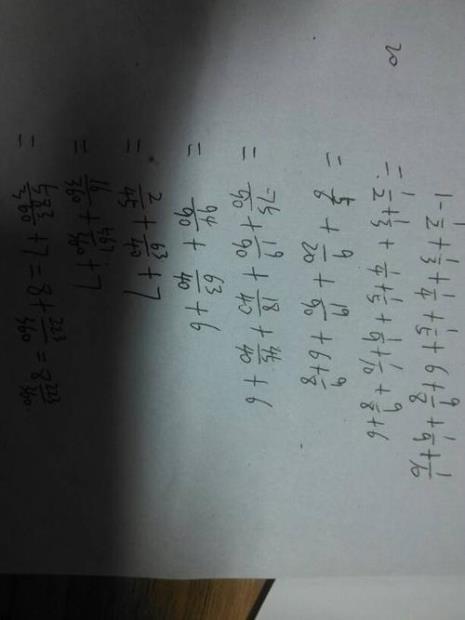 1-1/2+1/3+1/4+1/5+6+9/8+1/9+1/10
=1/2+1/3+1/4+1/5+1/9+1/10+9/8+6
=5/6+9/20+19/90+6+9/8
=75/90+19/90+18/40+45/40+6
=94/90+63/40+6
=2/45+63/40+7
=16/360+567/360+7
=583/360+7=8+223/360=8 223/360
20